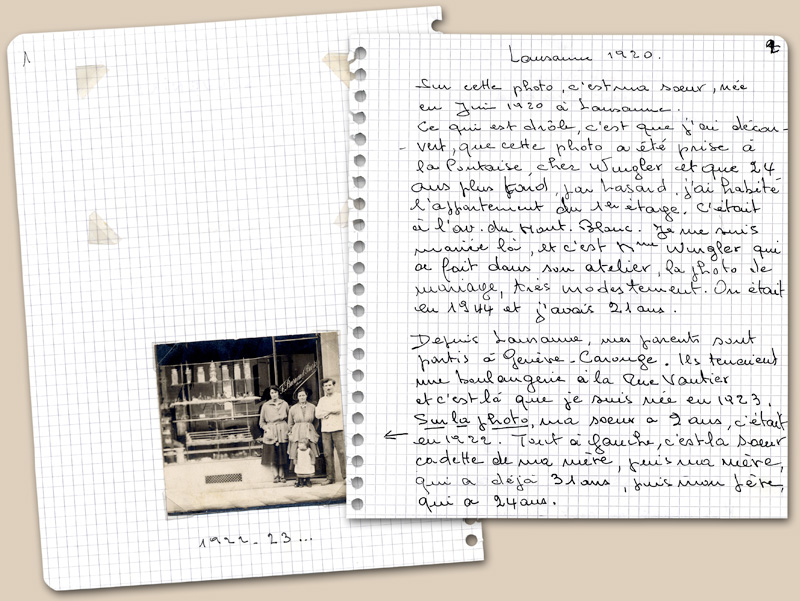 1
1922-23...
2
Lausanne 1920.
Sur cette photo, c'est ma sœur, née
en Juin 1920 à Lausanne.
Ce qui est drôle, c'est que j'ai décou-
vert, que cette photo a été prise à
la Pontaise, chez Wingler et que 24
ans plus tard, par hasard, j'ai habité
l'appartement du 1er étage. C'était
à l'av. du Mont. Blanc. Je me suis
mariée là, et c'est Mme Wingler qui
a fait dans son atelier, la photo de
mariage, très modestement. On était
en 1944 et j'avais 21 ans.
Depuis Lausanne, mes parents sont
partis à Genève-Carouge. Ils tenaient
une boulangerie à la Rue Vautier
et c'est là que je suis née en 1923.
Sur la photo, ma sœur a 2 ans, c'était
en 1922. Tout à gauche, c'est la sœur
cadette de ma mère, puis ma mère,
qui a déjà 31 ans, puis mon père,
qui a 24 ans.